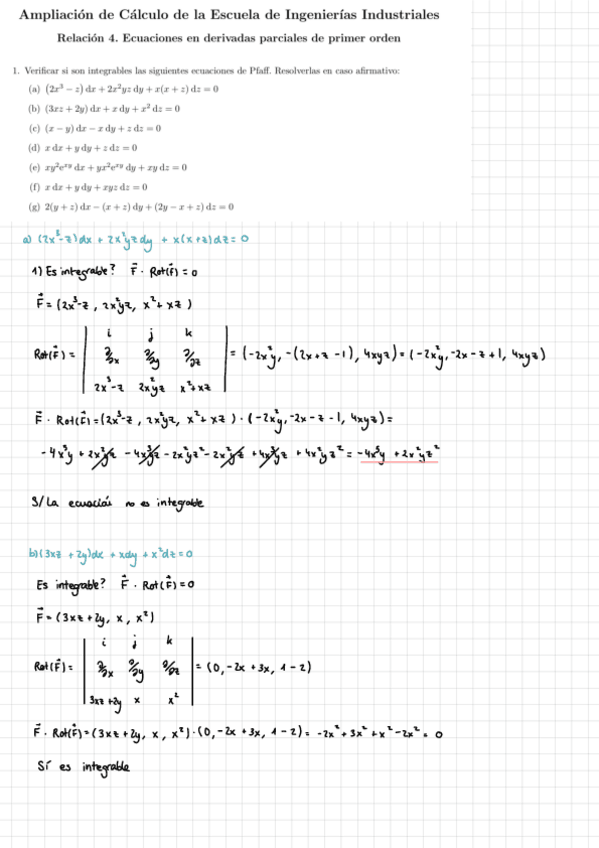 Ampliación de Cálculo de la Escuela de Ingenierías Industriales
Relación 4. Ecuaciones en derivadas parciales de primer orden
1. Verificar si son integrables las siguientes ecuaciones de Pfaff. Resolverlas en caso afirmativo:
(a) (2x³ − z) dx + 2x²yz dy + x(x + z) dz = 0
(b) (3xz + 2y) dx + x dy + x² dz = 0
(c) (x − y) dx − x dy + z dz = 0
(d) x dx + y dy + z dz = 0
(e) xy²eˣʸ dx + yx²eˣʸ dy + xy dz = 0
(f) x dx + y dy + xyz dz = 0
(g) 2(y + z) dx − (x + z) dy + (2y − x + z) dz = 0
a) (2x³-z)dx + 2x²yzdy + x(x+z)dz = 0
1) Es integrable? F⃗ · Rot(F⃗) = 0
F⃗ = (2x³-z, 2x²yz, x²+xz)
i j k
Rot(F⃗) = | ∂/∂x ∂/∂y ∂/∂z | = (-2x²y, -(2x+z-1), 4xyz) = (-2x²y, -2x-z+1, 4xyz)
2x³-z 2x²yz x²+xz
F⃗ · Rot(F⃗) = (2x³-z, 2x²yz, x²+xz) · (-2x²y, -2x-z-1, 4xyz) =
-4x⁵y + 2x²yz - 4x³yz - 2x²yz² - 2x²yz + 4x³yz + 4x²yz² = -4x⁵y + 2x²yz²
S/ La ecuación no es integrable
b) (3xz + 2y)dx + xdy + x²dz = 0
Es integrable? F⃗ · Rot(F⃗) = 0
F⃗ = (3xz + 2y, x, x²)
i j k
Rot(F⃗) = | ∂/∂x ∂/∂y ∂/∂z | = (0, -2x + 3x, 1-2)
3xz+2y x x²
F⃗ · Rot(F⃗) = (3xz + 2y, x, x²) · (0, -2x + 3x, 1-2) = -2x² + 3x² + x² - 2x² = 0
Sí es integrable